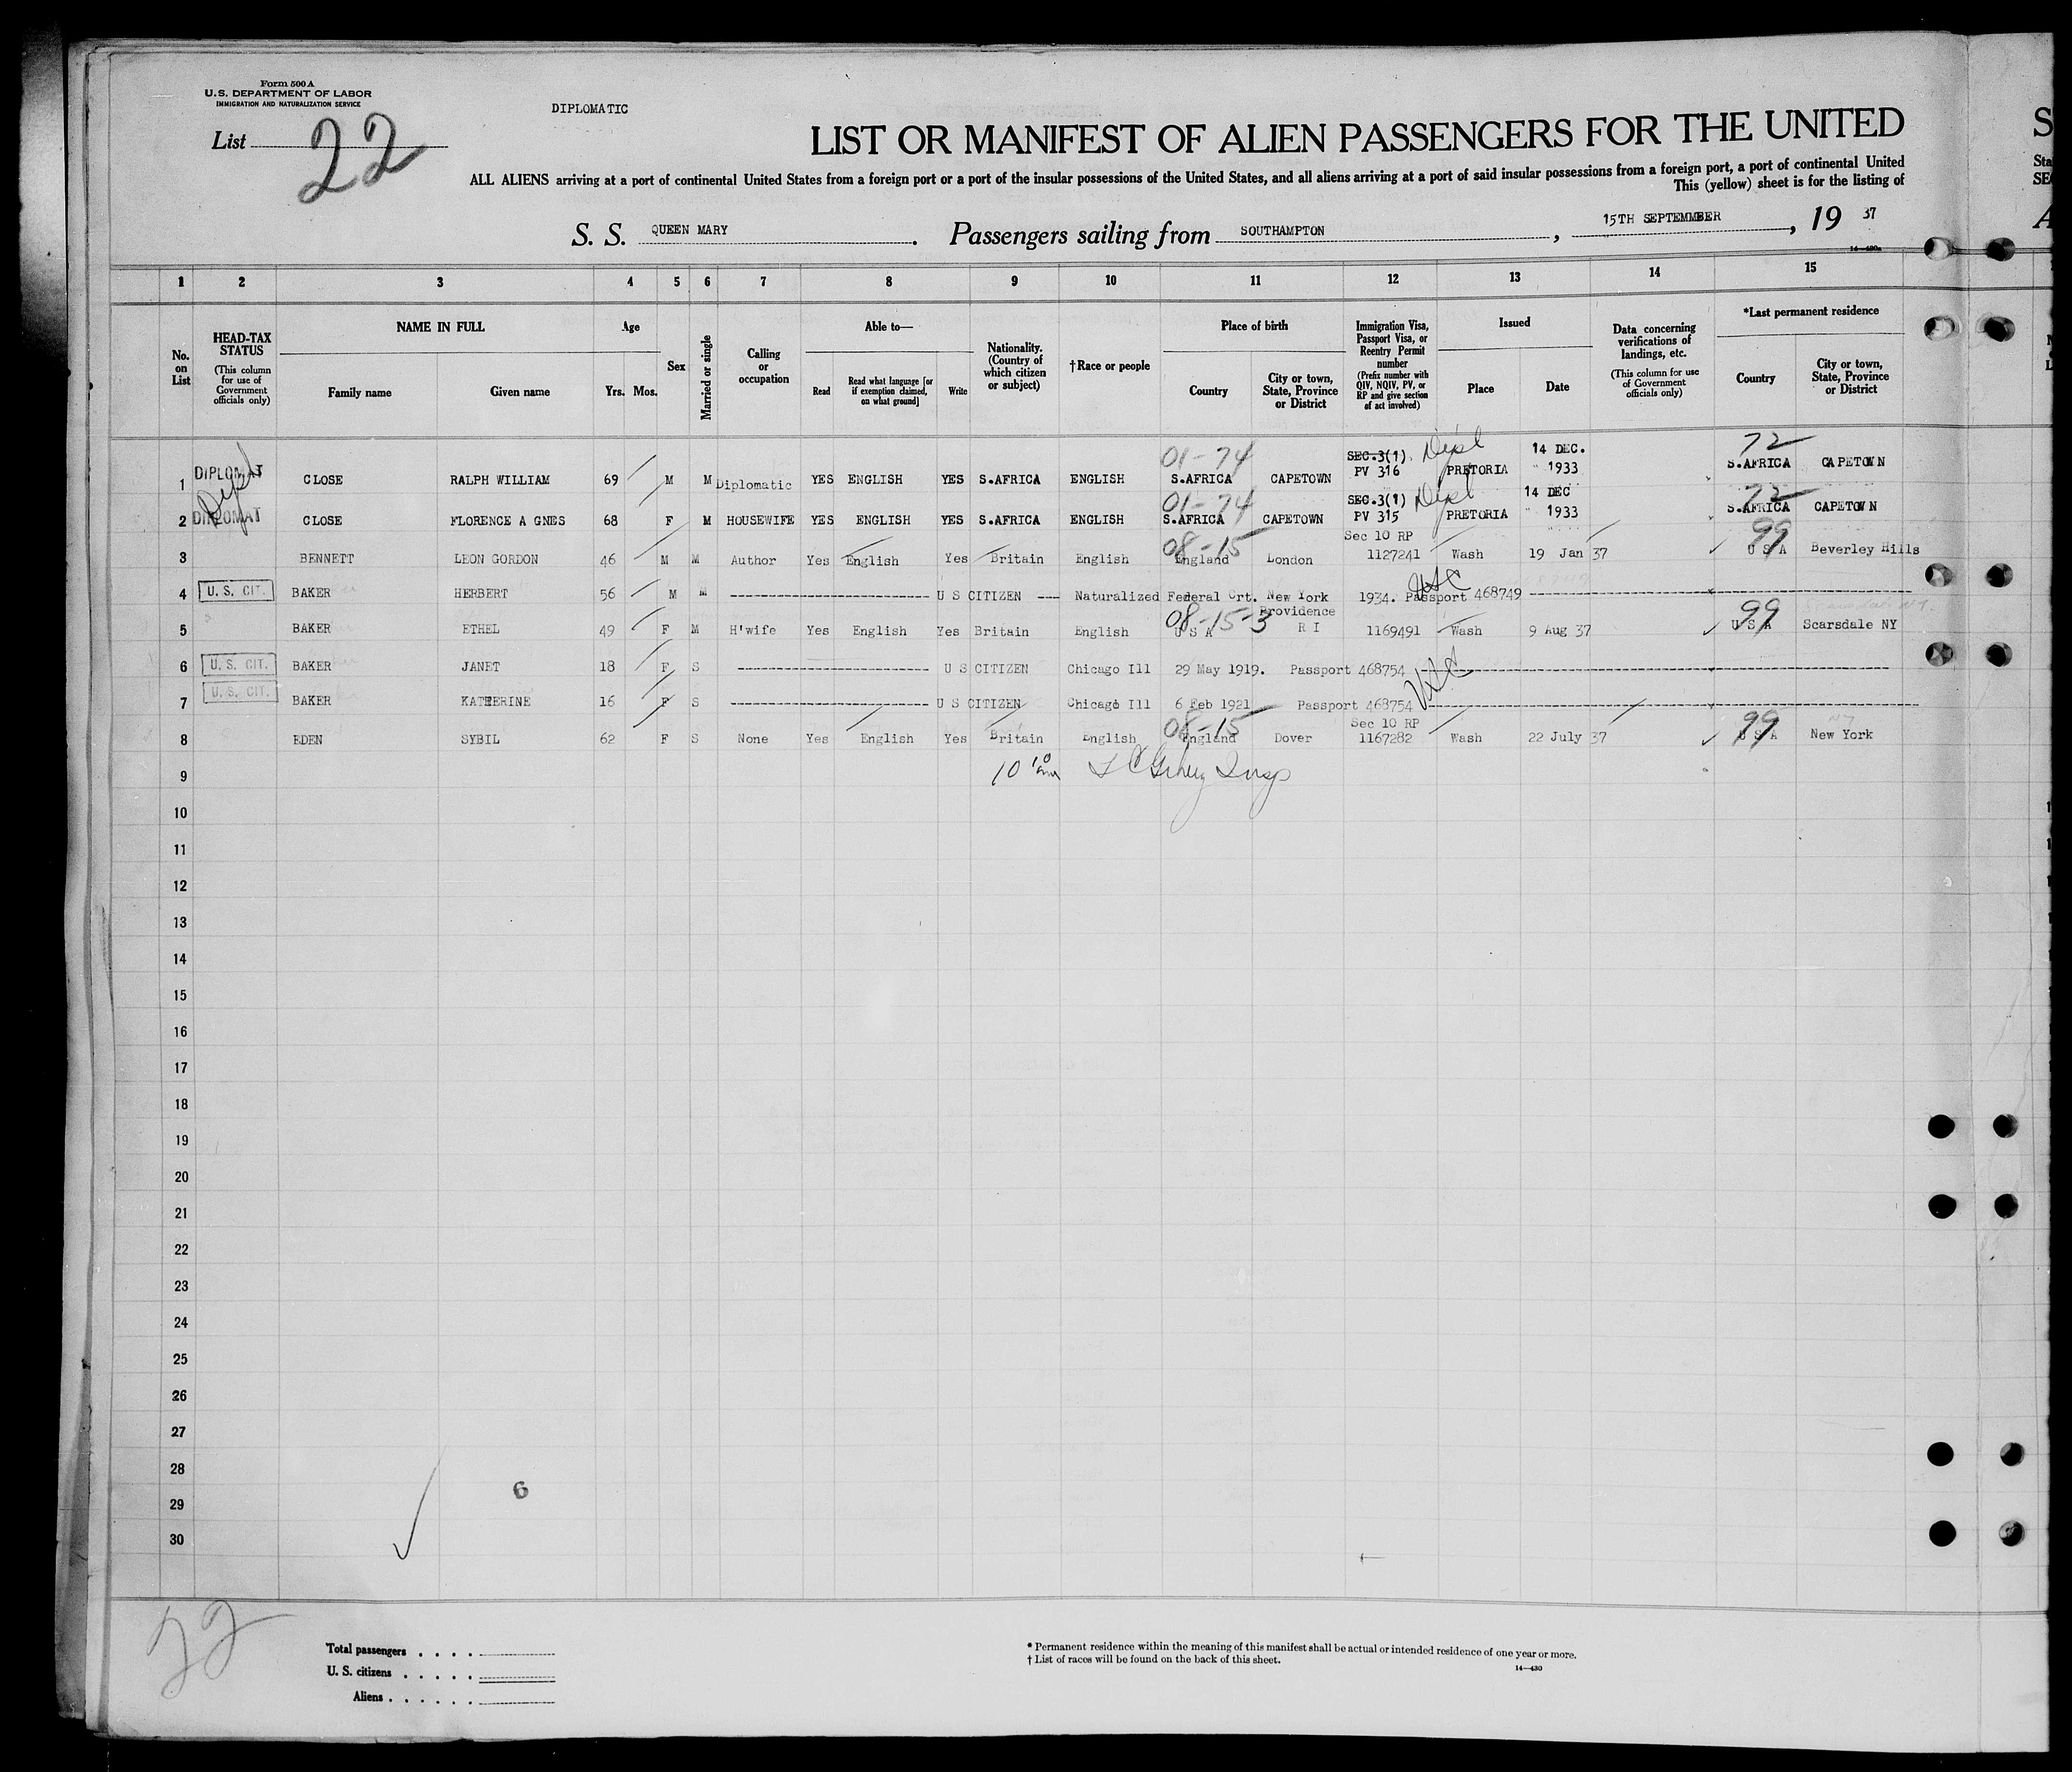 Form 500 A
U.S. DEPARTMENT OF LABOR
IMMIGRATION AND NATURALIZATION SERVICE
DIPLOMATIC
List 22
LIST OR MANIFEST OF ALIEN PASSENGERS FOR THE UNITED
ALL ALIENS arriving at a port of continental United States from a foreign port or a port of the insular possessions of the United States, and all aliens arriving at a port of said insular possessions from a foreign port, a port of continental United
This (yellow) sheet is for the listing of
S. S. QUEEN MARY. Passengers sailing from SOUTHAMPTON, 15TH SEPTEMMBER, 19 37
14—430a
1 2 3 4 5 6 7 8 9 10 11 12 13 14 15
No. on List
HEAD-TAX STATUS
(This column for use of Government officials only)
NAME IN FULL
Family name Given name
Age
Yrs. Mos.
Sex
Married or single
Calling or occupation
Able to—
Read Read what language [or if exemption claimed, on what ground] Write
Nationality. (Country of which citizen or subject)
†Race or people
Place of birth
Country City or town, State, Province or District
Immigration Visa, Passport Visa, or Reentry Permit number
(Prefix number with QIV, NQIV, PV, or RP and give section of act involved)
Issued
Place Date
Data concerning verifications of landings, etc.
(This column for use of Government officials only)
*Last permanent residence
Country City or town, State, Province or District
01-74 SEC.3(1) Dipl 14 DEC. 72
1 DIPLOMAT Dipl CLOSE RALPH WILLIAM 69 M M Diplomatic YES ENGLISH YES S.AFRICA ENGLISH S.AFRICA CAPETOWN PV 316 PRETORIA " 1933 S.AFRICA CAPETOWN
01-74 SEC.3(1) Dipl 14 DEC 72
2 DIPLOMAT CLOSE FLORENCE A GNES 68 F M HOUSEWIFE YES ENGLISH YES S.AFRICA ENGLISH S.AFRICA CAPETOWN PV 315 PRETORIA " 1933 S.AFRICA CAPETOWN
08-15 Sec 10 RP 99
3 BENNETT LEON GORDON 46 M M Author Yes English Yes Britain English England London 1127241 Wash 19 Jan 37 U S A Beverley Hills
4 U. S. CIT. BAKER HERBERT 56 M M U S CITIZEN --- Naturalized Federal Crt. New York 1934. Passport 468749 USC
08-15-3 Providence 99
5 BAKER ETHEL 49 F M H'wife Yes English Yes Britain English U S A R I 1169491 Wash 9 Aug 37 U S A Scarsdale NY
6 U. S. CIT. BAKER JANET 18 F S U S CITIZEN Chicago Ill 29 May 1919. Passport 468754 USC
7 U. S. CIT. BAKER KATHERINE 16 F S U S CITIZEN Chicago Ill 6 Feb 1921 Passport 468754
08-15 Sec 10 RP 99
8 EDEN SYBIL 62 F S None Yes English Yes Britain English England Dover 1167282 Wash 22 July 37 U S A New York
9 10 10 am Insp
10
11
12
13
14
15
16
17
18
19
20
21
22
23
24
25
26
27
28
29 6
30
22
Total passengers . . . .
U. S. citizens . . . . .
Aliens . . . . . .
* Permanent residence within the meaning of this manifest shall be actual or intended residence of one year or more.
† List of races will be found on the back of this sheet.
14—430